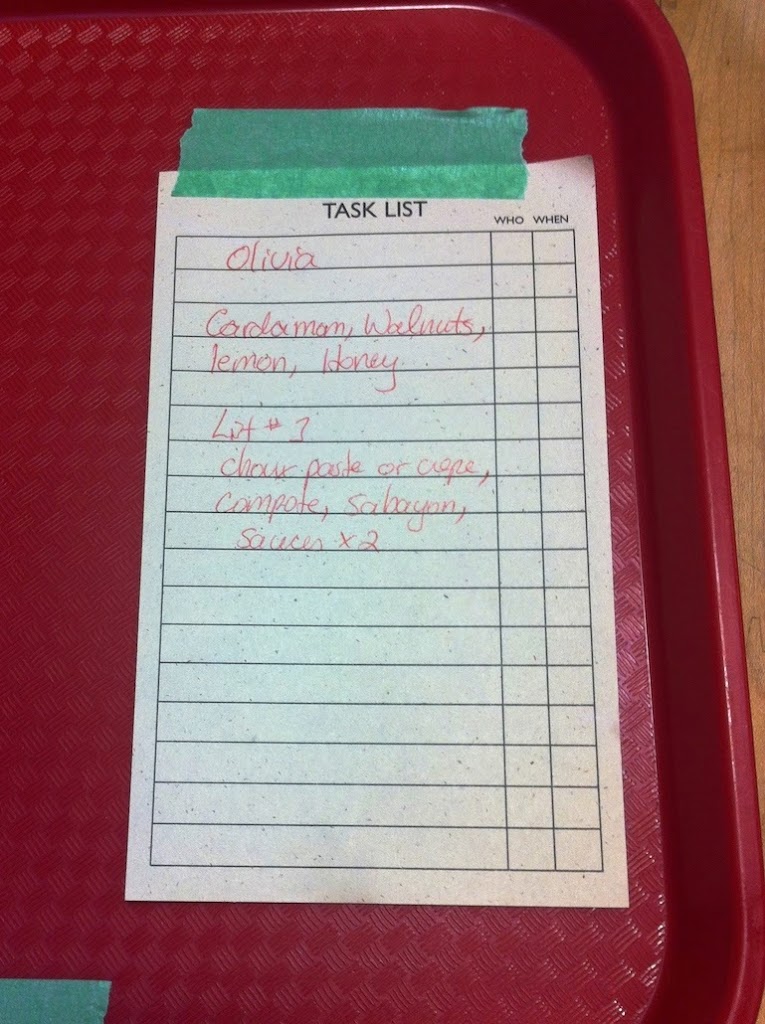 TASK LIST
WHO WHEN
Olivia
Cardamom, Walnuts,
lemon, Honey
List # 3
choux paste or crepe,
compote, Sabayon,
Sauces x 2